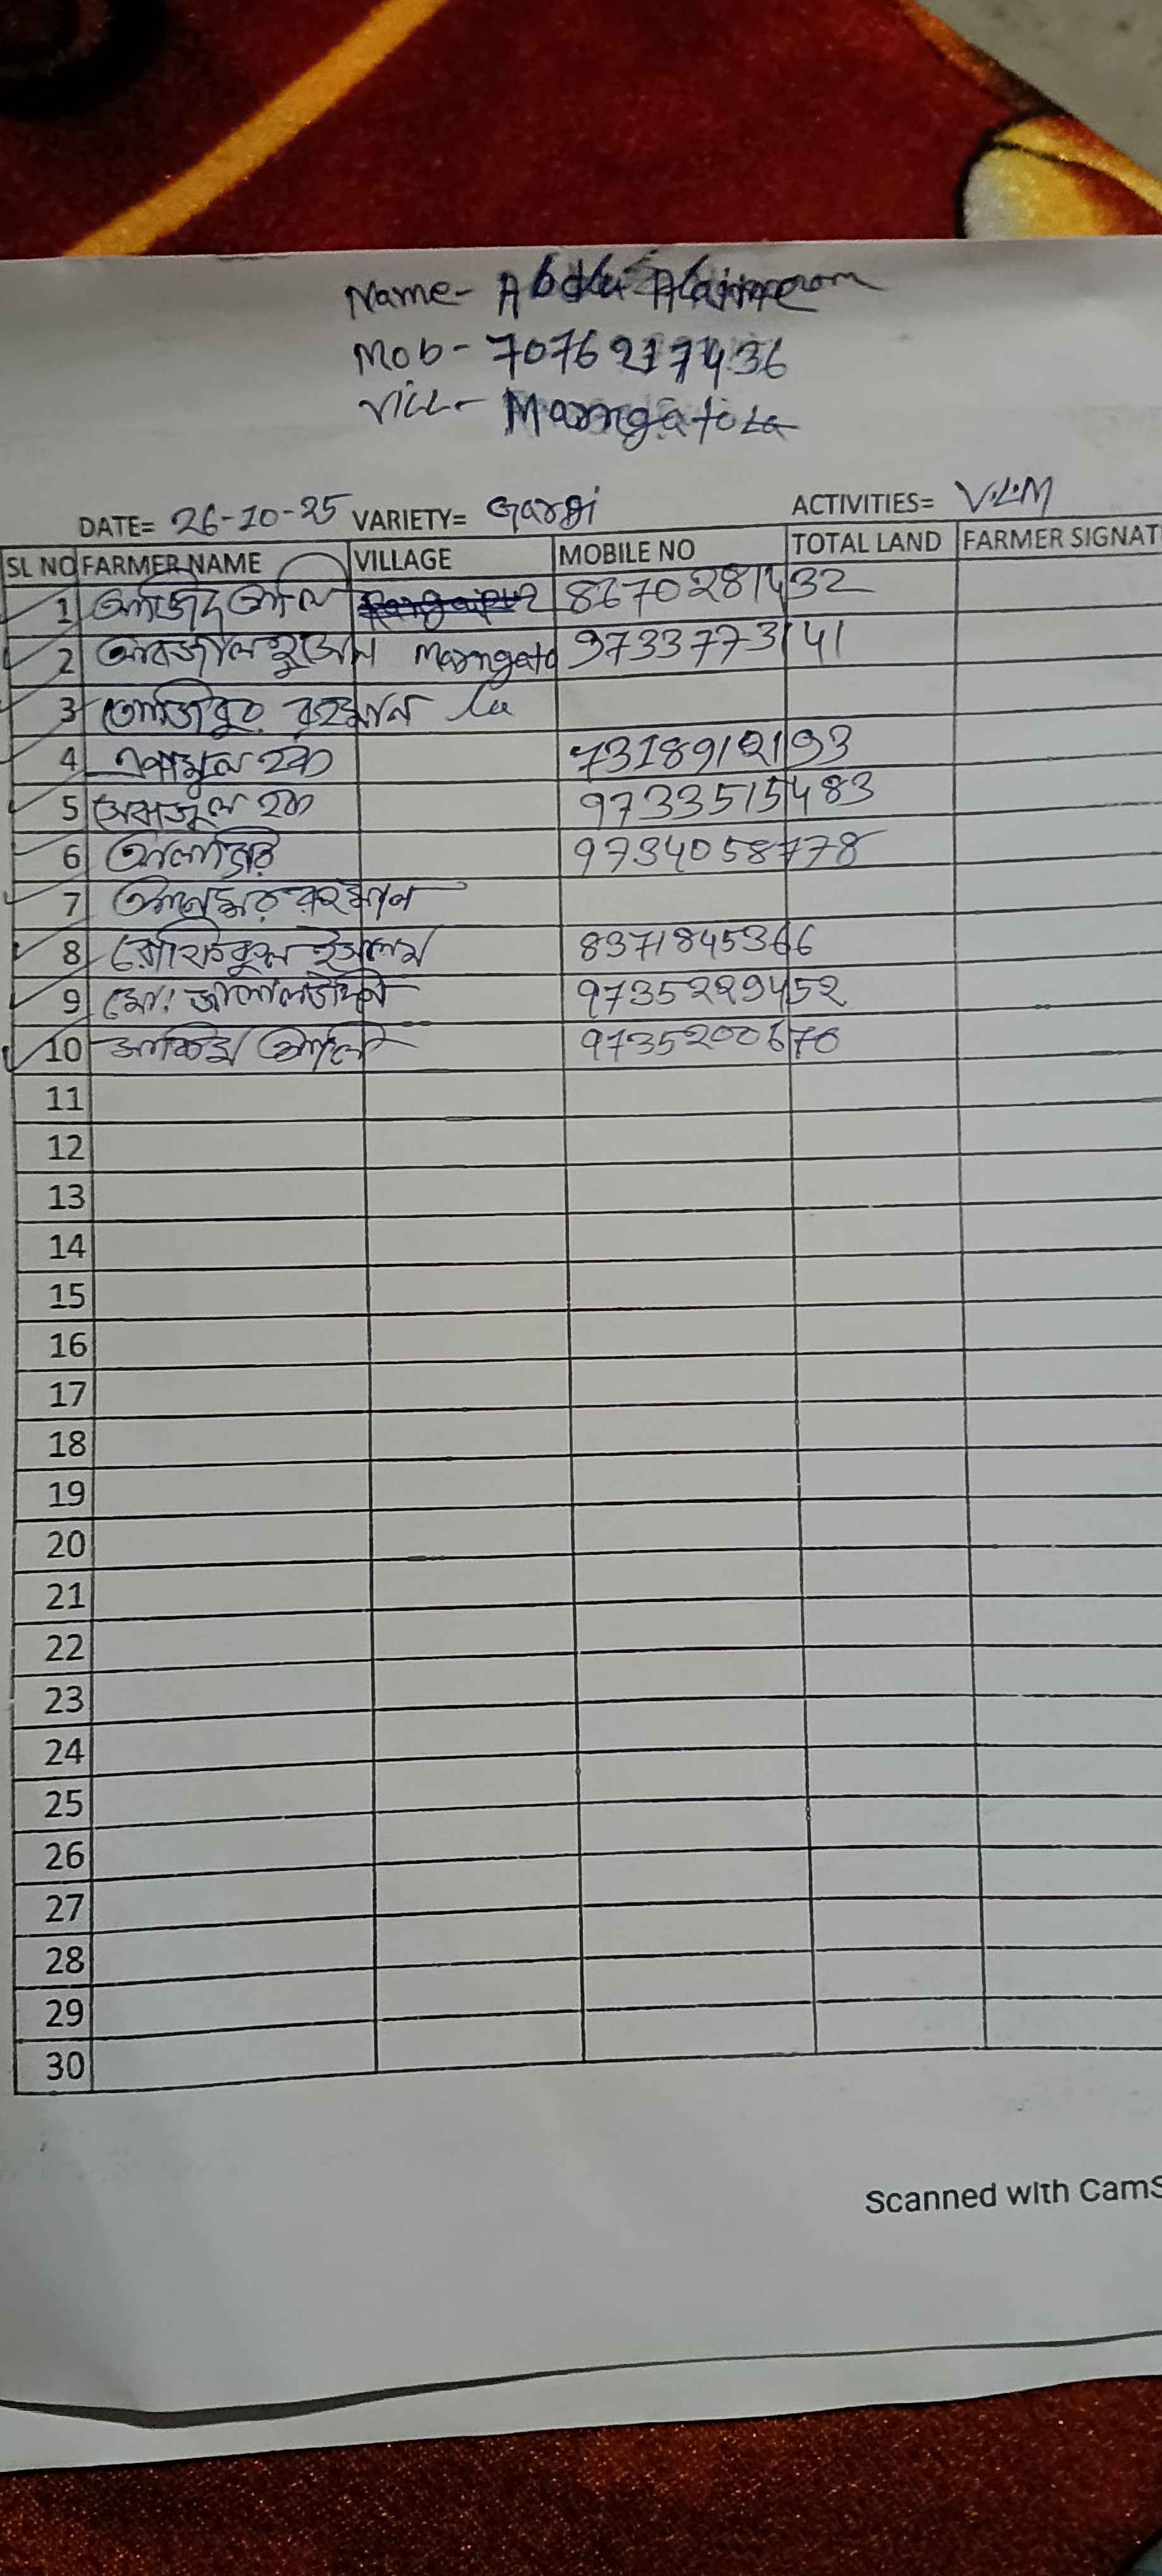 Name-
Mob- 7076217436
Vill- Marngatola
DATE= 26-10-25 VARIETY= Gargi ACTIVITIES= V.L.M
SL NO FARMER NAME VILLAGE MOBILE NO TOTAL LAND FARMER SIGNAT
1 আজিদ আলি 8670281432
2 আবজাল হুসেন Marngato 9733773141
3 তোজিবুর রহমান
4 হক 7318912193
5 হক 9733515483
6 9734058778
7 রহমান
8 রফিকুল ইসলাম 8371845366
9 মো: জালালউদ্দিন 9735229452
10 আলি 9735200670
11
12
13
14
15
16
17
18
19
20
21
22
23
24
25
26
27
28
29
30
Scanned with CamS